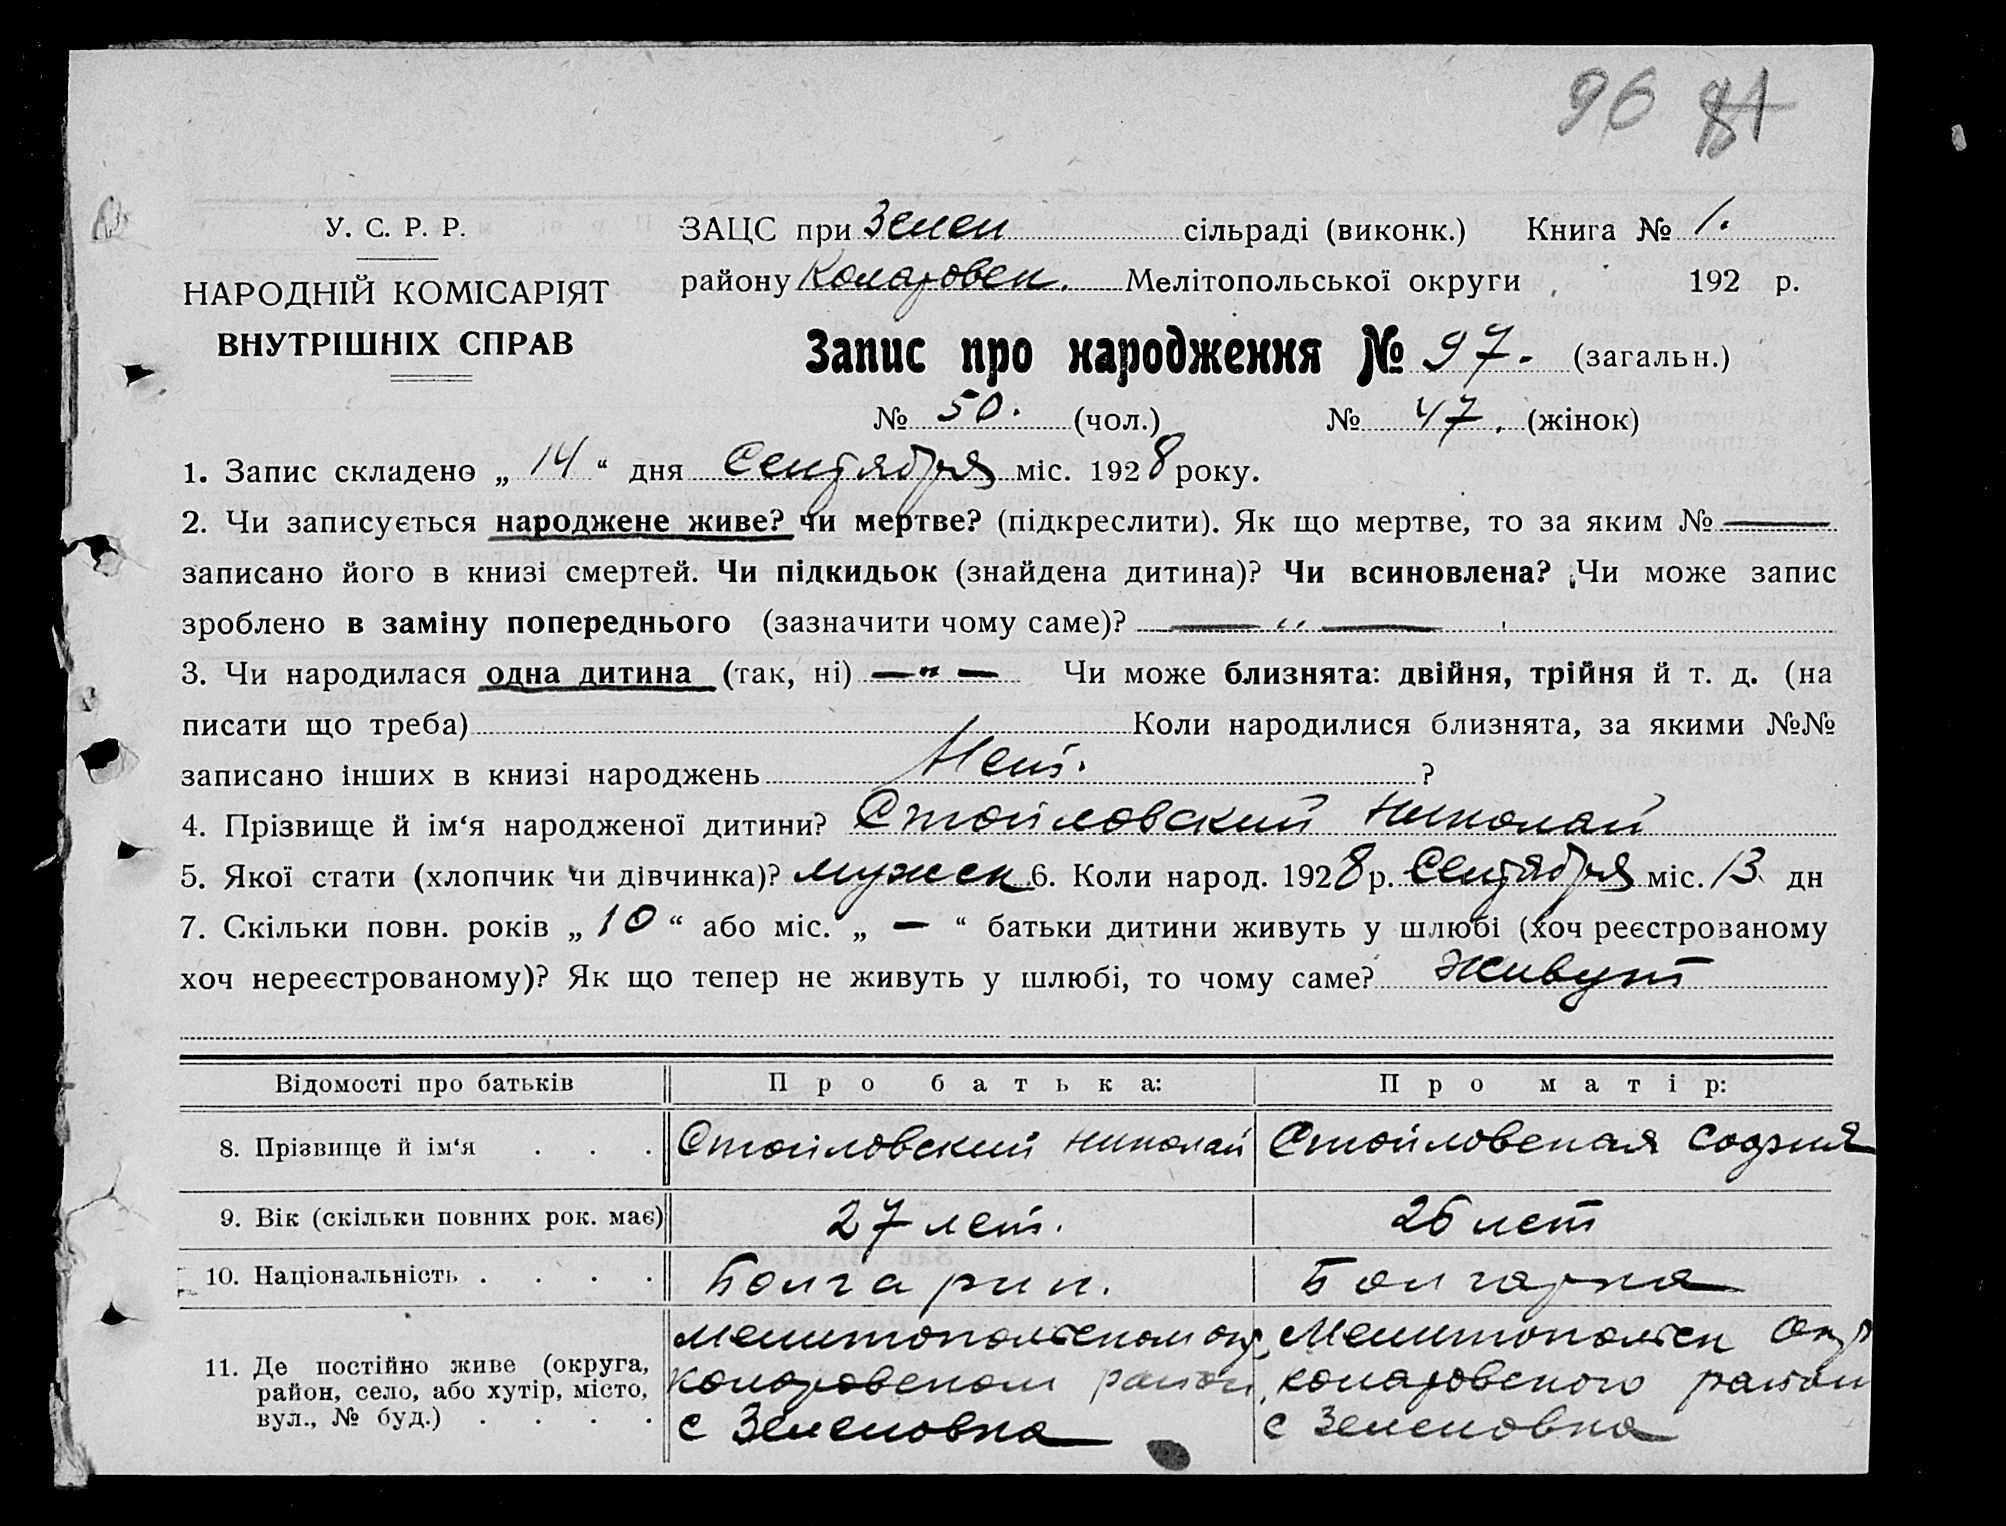 96 81
У. С. Р. Р.
НАРОДНІЙ КОМІСАРІЯТ
ВНУТРІШНІХ СПРАВ
ЗАЦС при Зелен сільраді (виконк.) Книга № 1.
району Коларовск. Мелітопольської округи 192 р.
Запис про народження № 97. (загальн.)
№ 50. (чол.) № 47. (жінок)
1. Запис складено „ 14 “ дня Сентября міс. 1928 року.
2. Чи записується народжене живе? чи мертве? (підкреслити). Як що мертве, то за яким № —
записано його в книзі смертей. Чи підкидьок (знайдена дитина)? Чи всиновлена? Чи може запис
зроблено в заміну попереднього (зазначити чому саме)? — „ —
3. Чи народилася одна дитина (так, ні) — „ — Чи може близнята: двійня, трійня й т. д. (на
писати що треба) Коли народилися близнята, за якими №№
записано інших в книзі народжень Нет. ?
4. Прізвище й ім‘я народженої дитини? Стойловский Николай
5. Якої стати (хлопчик чи дівчинка)? мужск 6. Коли народ. 1928 р. Сентября міс. 13 дн
7. Скільки повн. років „ 10 “ або міс. „ — “ батьки дитини живуть у шлюбі (хоч реєстрованому
хоч нереєстрованому)? Як що тепер не живуть у шлюбі, то чому саме? Живут
Відомості про батьків Про батька: Про матір:
8. Прізвище й ім‘я . . . Стойловский Николай Стойловская София
9. Вік (скільки повних рок. має) 27 лет. 26 лет
10. Національність . . . . Болгарин. Болгарка
11. Де постійно живе (округа, район, село, або хутір, місто, вул., № буд.) . . . .
Мелитопольском окр,
Коларовском район,
с Зеленовка
Мелитопольск Окр
Коларовского район
с Зеленовка